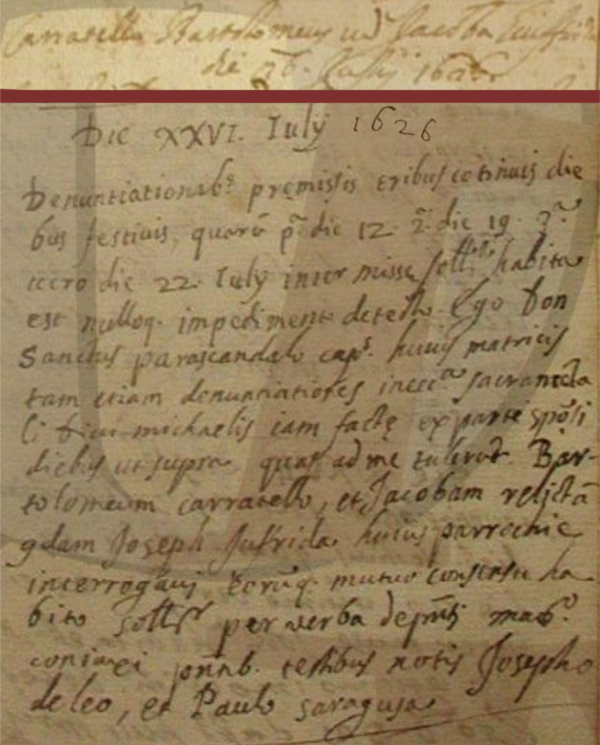 Carratello Bartolomeus ud Jacoba Jiuffrida
die 26 Julij 1626
Die XXVI. Iulÿ 1626
Denuntiationab.s premissis tribus cotinuis die
bus festiuis, quarū p.a die 12. 2.a die 19. 3.a
uero die 22. Iulÿ inter missar̃ soll.nia habita
est nulloq. impedimento detecto. Ego Don
Sanctus parascandalo cap.s huius matricis
tam etiam denuntiationes in sacramēta
li Diui michaelis iam factę ex parte spōsi
diebus ut supra quas ad me tulerūt. Bar-
tolomeum carratello, et Jacobam relictā
qdam Joseph Jufrida huius parrochie
interrogaui, eorūq. mutuo consensu ha
bito soll.r per uerba de pñti mat.o
coniūxi pñtib. testibus notis Josepho
de leo, et Paulo saragusa